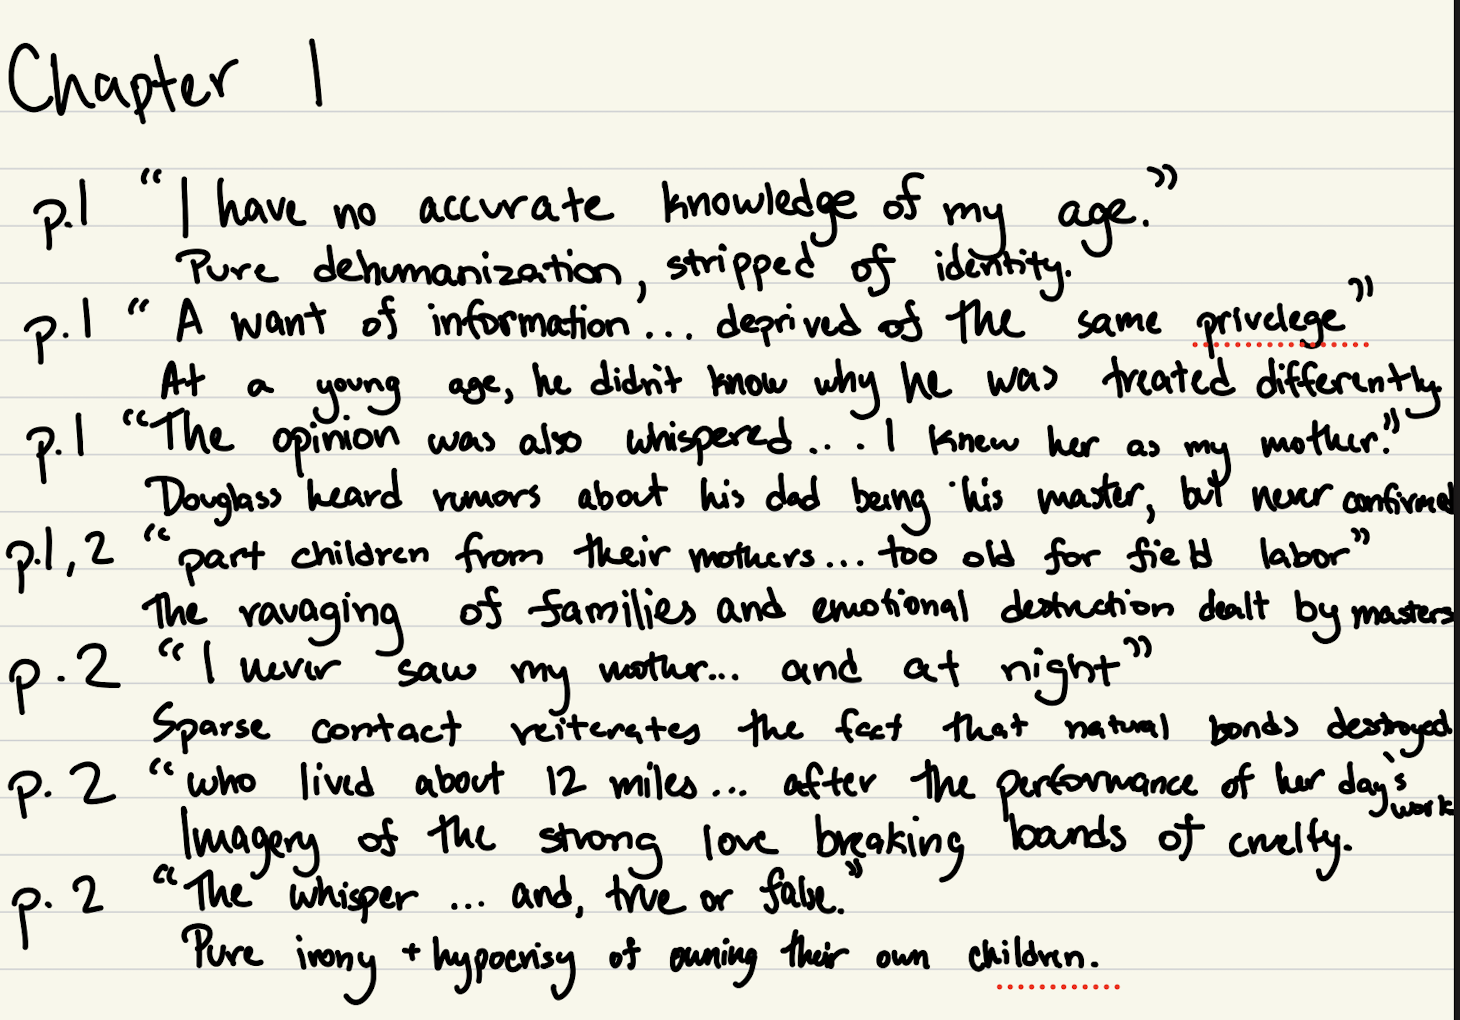 Chapter 1
p.1 “I have no accurate knowledge of my age.”
Pure dehumanization, stripped of identity.
p.1 “A want of information... deprived of the same privelege”
At a young age, he didn't know why he was treated differently
p.1 “The opinion was also whispered... I knew her as my mother.”
Douglass heard rumors about his dad being his master, but never confirmed
p.1,2 “part children from their mothers... too old for field labor”
The ravaging of families and emotional destruction dealt by masters
p.2 “I never saw my mother... and at night”
Sparse contact reiterates the fact that natural bonds destroyed
p.2 “who lived about 12 miles... after the performance of her day's work
Imagery of the strong love breaking bounds of cruelty.
p.2 “The whisper... and, true or false.”
Pure irony + hypocrisy of owning their own children.